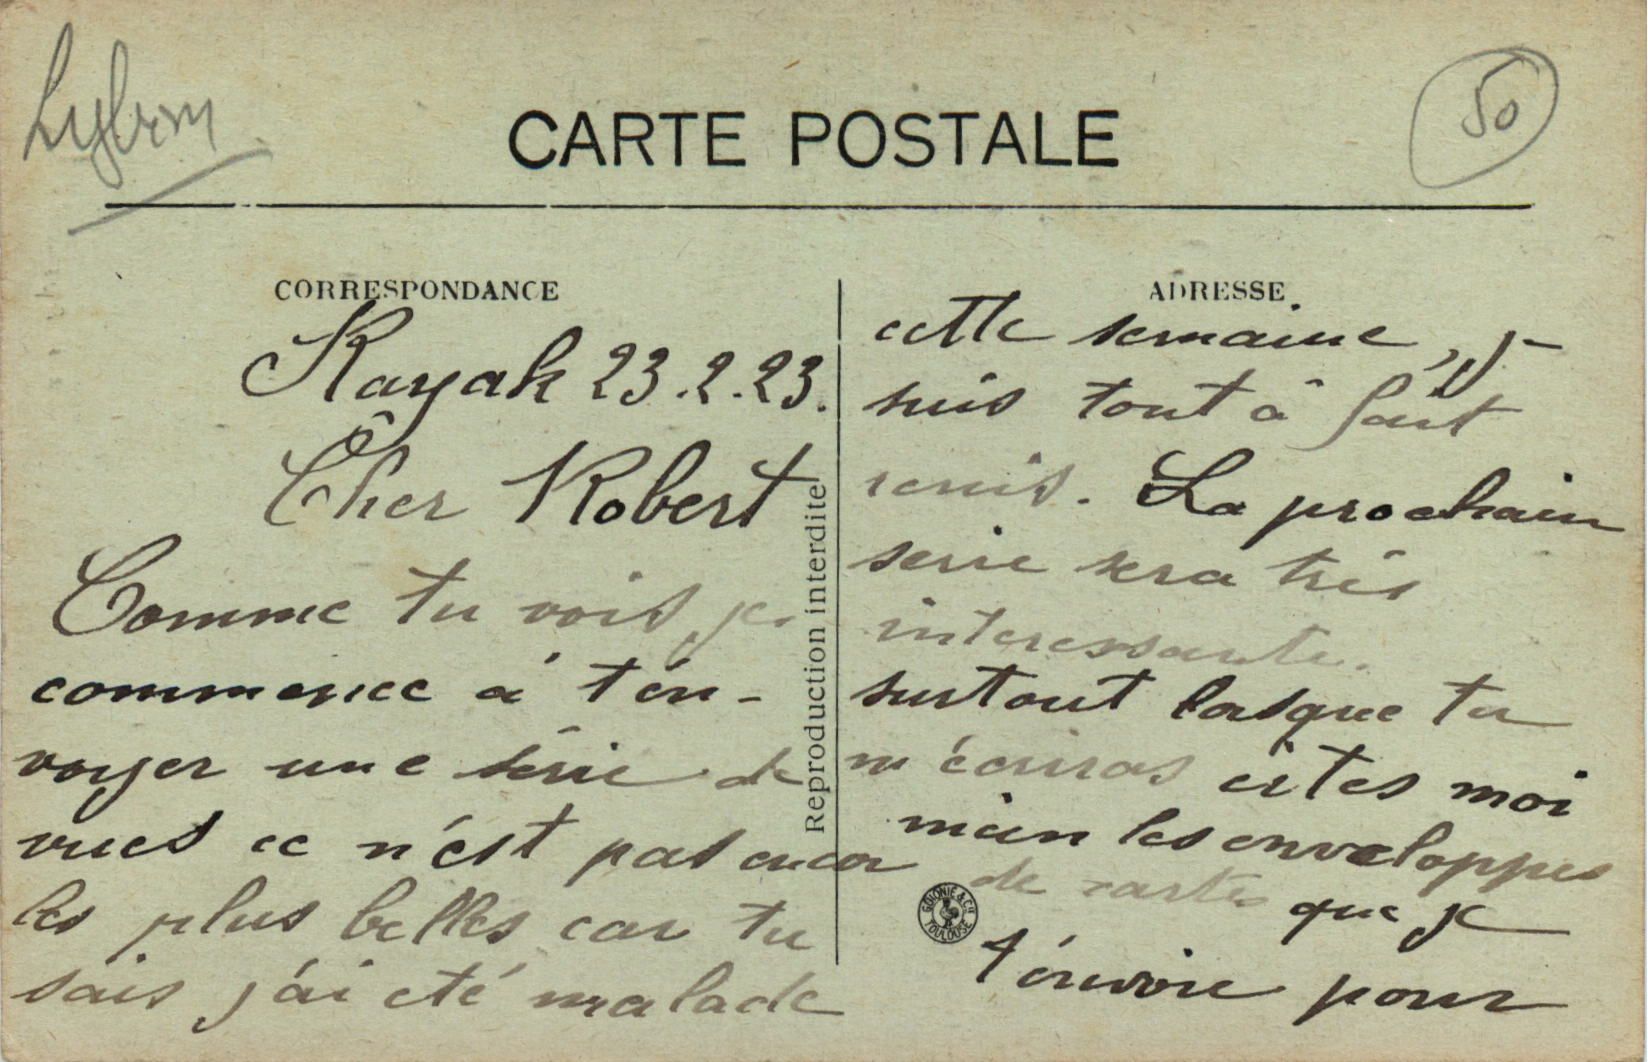 50
CARTE POSTALE
CORRESPONDANCE
Kayak 23.2.23.
Cher Robert
Comme tu vois je
commence à t'én-
voyer une série de
vues ce n'ést pas encor
les plus belles car tu
sais j'ái eté malade
Reproduction interdite
ADRESSE
cette semaine, j-
suis tout â fait
remis. La prochain
serie sera très
interessante.
surtout lasque tu
m'écriras
moi
les enveloppes
de cartes que je
t'énvoie pour
LABOUCHE... TOULOUSE